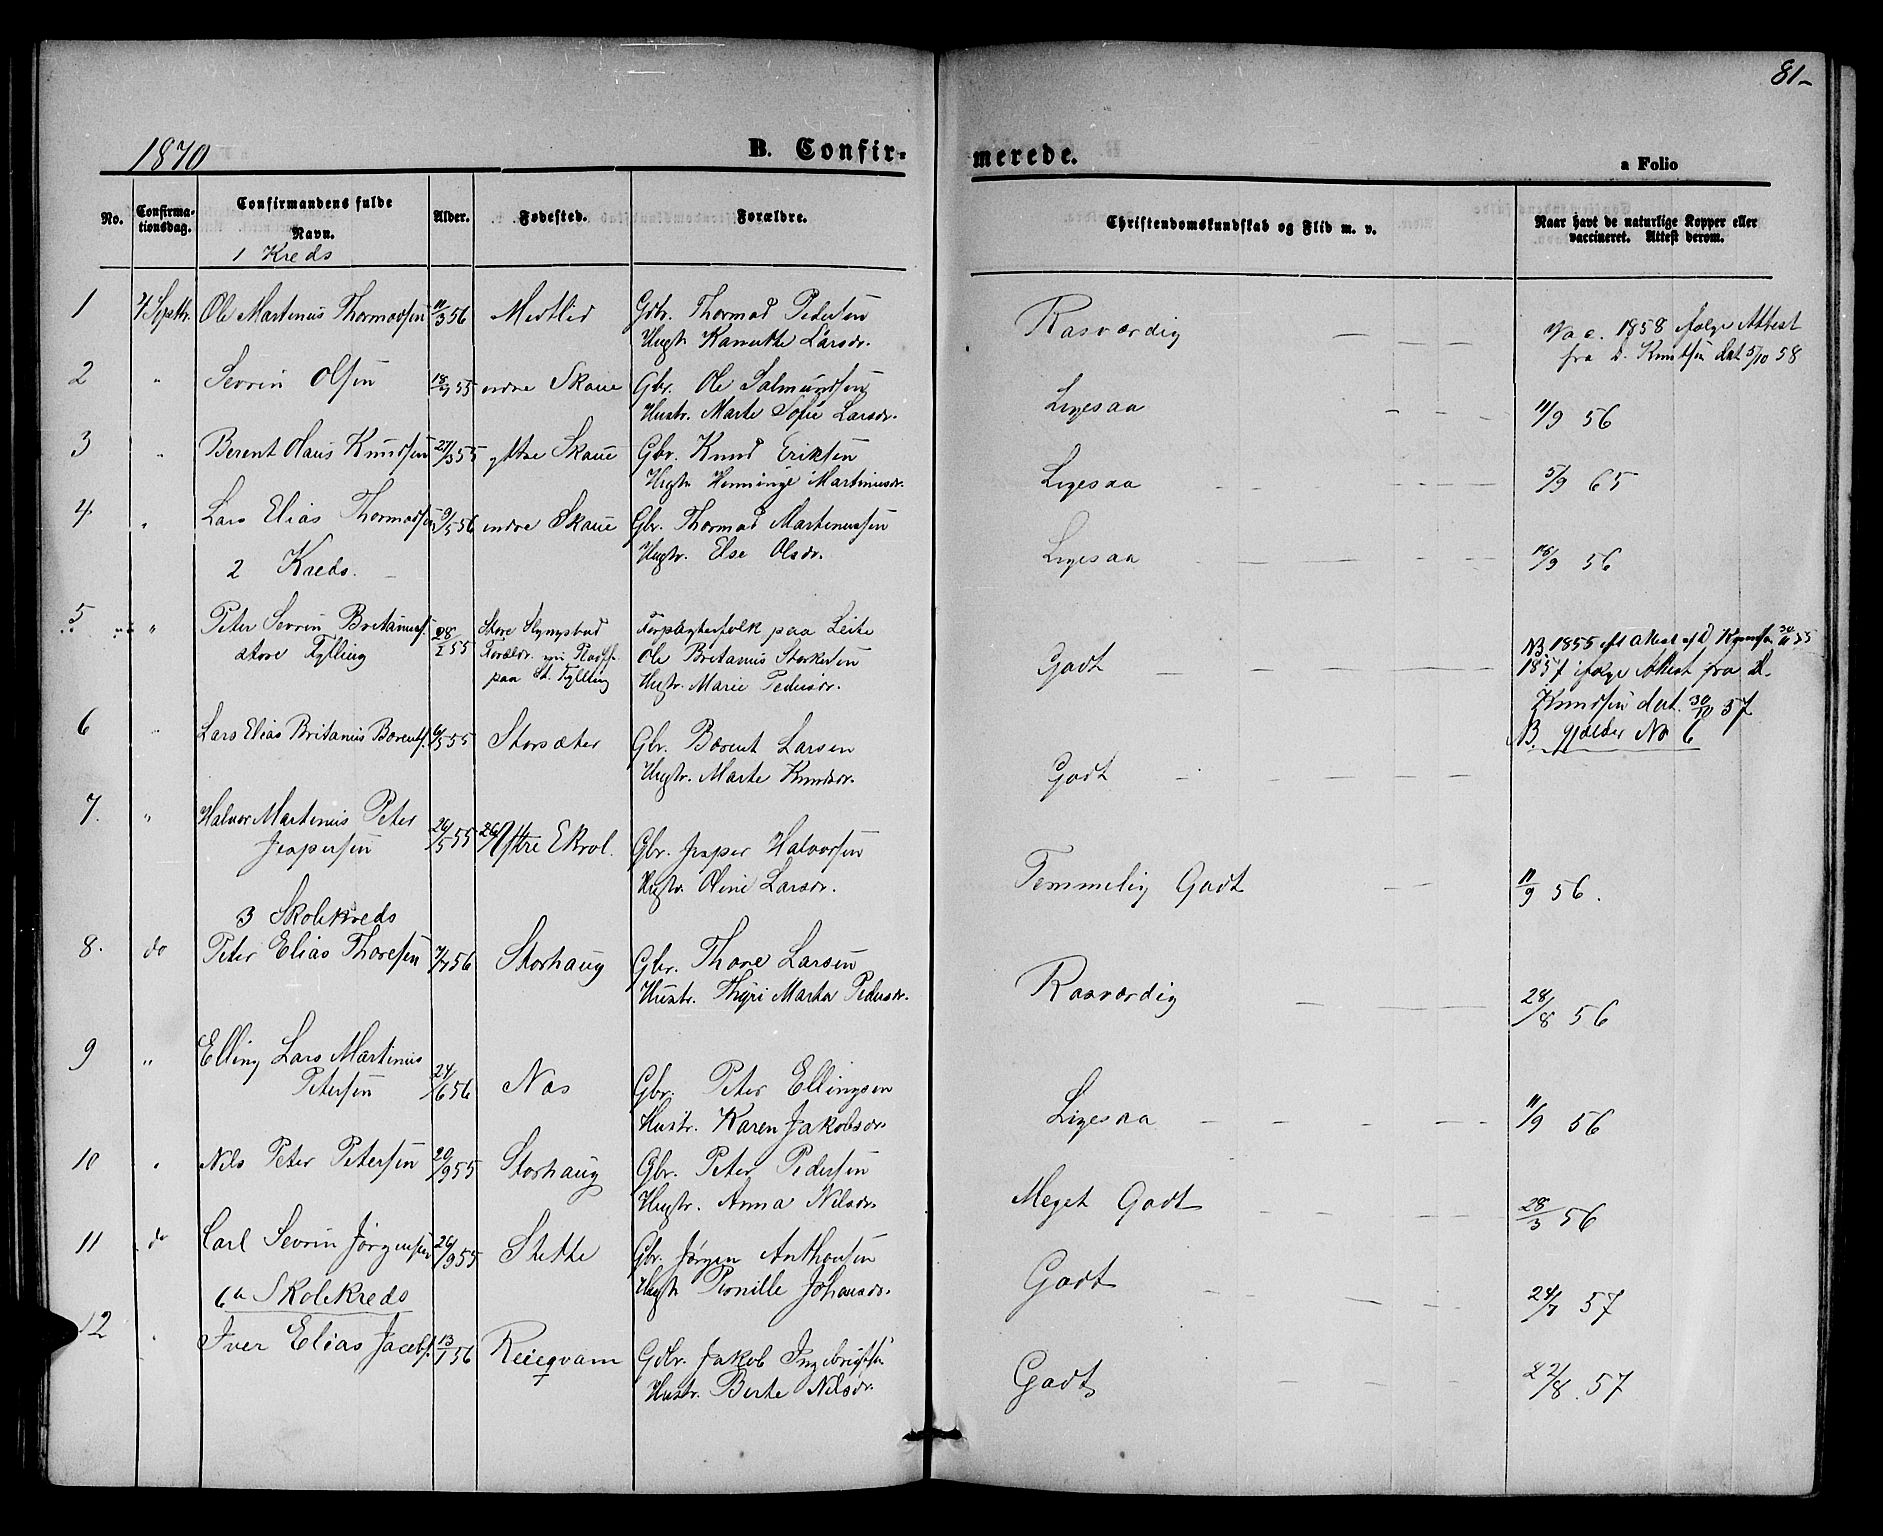 81-
1870
B. Confir-
merede.
a Folio
No.
Confirma-
tionsdag.
Confirmandens fulde
Navn.
Alder.
Fødested.
Forældre.
Christendomskundskab og Flid m. v.
Naar havt de naturlige Kopper eller
vaccineret. Attest derom.
1 Kreds
1 4 Septbr. Ole Martinus Thormodsen 11/3 56 Medtlid Gbr. Thormod Pedersen Rasværdig Vac. 1858 ifølge Attest
Hustr. Larsdr. fra D. Knudsen dat 5/10 58
2 " Sevrin Olsen 18/9 55 indre Skaue Gbr. Ole Salmundsen Ligesaa 11/9 56
Hustr. Marte Sofie Larsdr.
3 " Berent Olaus Knudsen 27/3 55 yttre Skaue Gbr. Knud Eriksen Ligesaa 5/9 65
Hustr. Henninge Martinusdr.
4 " Lars Elias Thormodsen 9/5 56 indre Skaue Gbr. Thormod Martinussen Ligesaa 16/9 56
Hustr. Else Olsdr.
2 Kreds.
5 " Peter Sevrin Britanius. 28/1 55 Store Slyngstad Forpagterfolk paa Leite Godt NB 1855 Attest
store Fylling Forældr. Ole Britanius Storkersen 1857 ifølge Attest fra D.
paa St. Fylling Hustr. Marie Pedersdr. Knudsen dat. 30/10 57
6 " Lars Elias Britanius Berents. 6/5 55 Storsæter Gbr. Berent Larsen Godt NB. gjelder No 6
Hustr. Marte Knudsdr.
7. " Halvor Martinus Peter 26/5 55 Ystre Ekrol. Gbr. Jesper Halvorsen Temmelig Godt 11/9 56.
Jespersen Hustr. Oline Larsdr.
3 Skolekreds
8. do Peter Elias Thoresen 7/7 56 Storhaug Gbr. Thore Larsen Rosværdig 28/8 56
Hustr. Thyri Marta Pedersdr.
9 " Elling Lars Martinus 24/6 56 Næs Gbr. Peter Ellingsen Ligesaa 11/9 56
Petersen Hustr. Karen Jakobsdr.
10 " Nils Peter Petersen 20/9 55 Storhaug Gbr. Peter Pedersen Meget Godt 28/3 56
Hustr. Anna Nilsdr.
11 do Carl Sevrin Jørgensen 26/9 55 Stette Gbr. Jørgen Anthonsen Godt 24/7 57
Hustr. Pernille Johansdr.
6te Skolekreds
12 " Iver Elias Jacobs. 13/1 56 Reieqvam Gbr. Jakob Ingebrigtsen Godt 22/8. 57
Hustr. Berte Nilsdr.